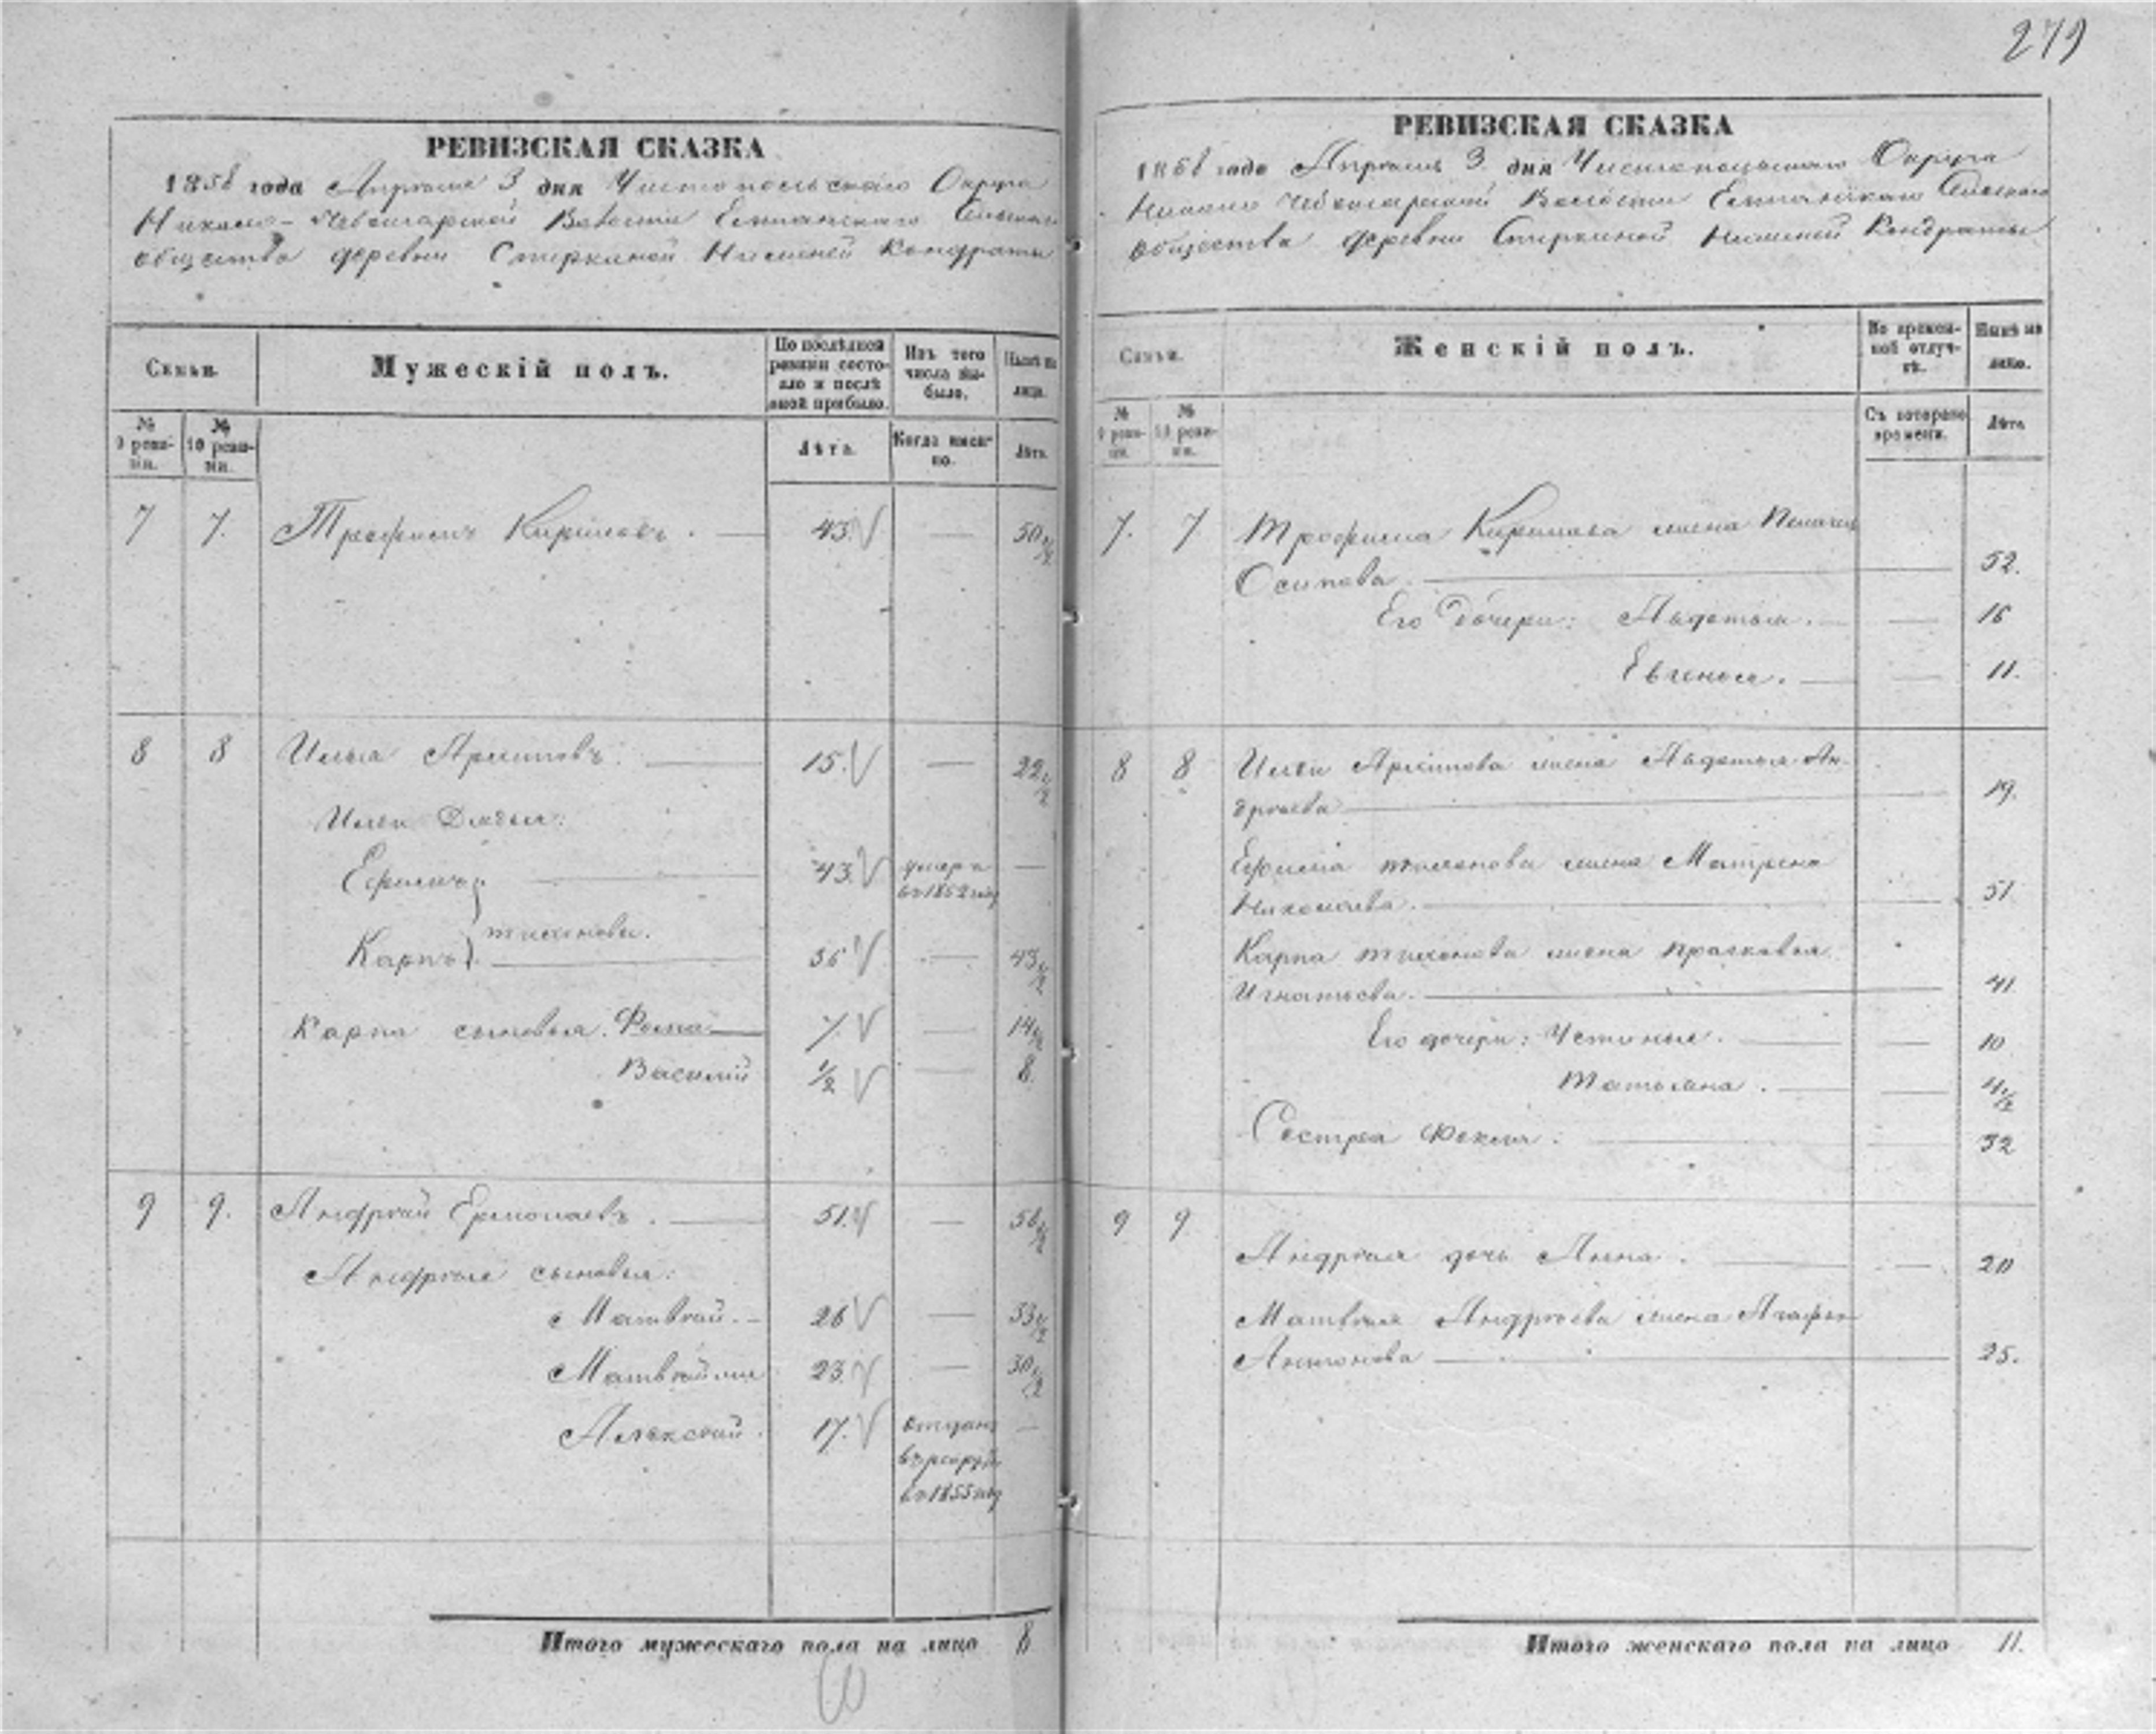 279
РЕВИЗСКАЯ СКАЗКА
1858 года Апреля 3 дня Чистопольскаго Округа
Николо-Чебоксарской Волости Сельскаго
общества деревни Нижней Кондраты
Семьи.
Мужескій полъ.
По послѣдней ревизіи состояло и послѣ оной прибыло.
Изъ того числа выбыло.
Нынѣ на лицо.
№ 9 ревизіи.
№ 10 ревизіи.
Лѣта.
Когда именно.
Лѣта.
7 7. Трофимъ Кириловъ. 43. — 50 1/2
8 8 Илья Архиповъ. 15. — 22 1/2
Ильи Дядья:
Ефимъ 43. умеръ въ 1852 году —
тихоновы.
Карпъ 36 — 43 1/2
Карпа сыновья. Фома 7. — 14 1/2
Василій 1/2 — 8.
9 9. Андрей Ермолаевъ. 51. — 58 1/2
Андрея сыновья:
Матвей. 26 — 33 1/2
Матвей 23. — 30 1/2
Алексей. 17. отдан в рекруты въ 1855 году —
Итого мужескаго пола на лицо 8
РЕВИЗСКАЯ СКАЗКА
1858 года Апреля 3 дня Чистопольскаго Округа
Николо Чебоксарской Волости Сельскаго
общества деревни Нижней Кондраты
Семьи.
Женскій полъ.
Во временной отлучкѣ.
Нынѣ на лицо.
№ 9 ревизіи.
№ 10 ревизіи.
Съ котораго времени.
Лѣта.
7. 7 Трофима Кирилова жена
Осипова. 52.
Его Дочери: Авдотья. — 16
Евгенья. — 11.
8 8 Ильи Архипова жена Авдотья Ан-
дреева 19.
Ефима тихонова жена Матрена
Николаева. 51
Карпа тихонова жена прасковья
Игнатьева. 41
Его дочери: Устинья. — 10
Татьяна. — 4 1/2
Сестра Фекла. 32
9 9
Андрея дочь Анна. — 20
Матвея Андреева жена Агафья
Антонова 25.
Итого женскаго пола на лицо 11.